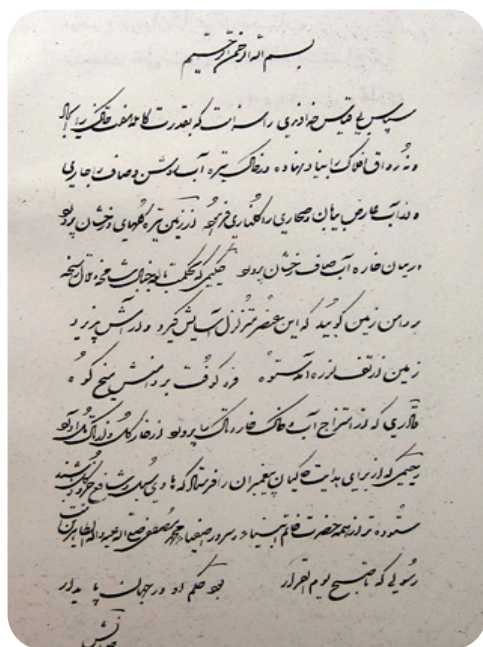 بسم الله الرحمن الرحیم
سپس بی قیاس خداوندی را سزاست که بقدرت کامله هفت خاک را
و نه رواق افلاک را بنیاد نهاده و در خاک تیره آب روشن و صاف را جاری
و از آب عارض بیابان و صحاری را گلناری فرموده از زمین تیره گلهای درخشان پرورد
و زمیان خاره آب صاف درخشان پرورد حکیمی که بحکمت بالغه جبال
بر دامن زمین کوبید که این عنصر متزلزل آسایش گیرد و آرامش پزیرد
زمین از تف لرزه آمد ستوه فرو کوفت بر دامنش میخ کوه
قادری که از امتزاج آب و خاک خار و تاک را پرورد از خار گل و از تاک مل آورد
رحیمی که از برای هدایت خاکیان پیغمبران را فرستاد که هادی سبل و شافع جزو و کل شدند
ستوده تر از همه حضرت خاتم انبیاء و سرور اصفیاء محمد مصطفی صلی الله علیه و آله الطاهرین
رسولی که تا صبح یوم القرار بود حکم او در جهان پایدار